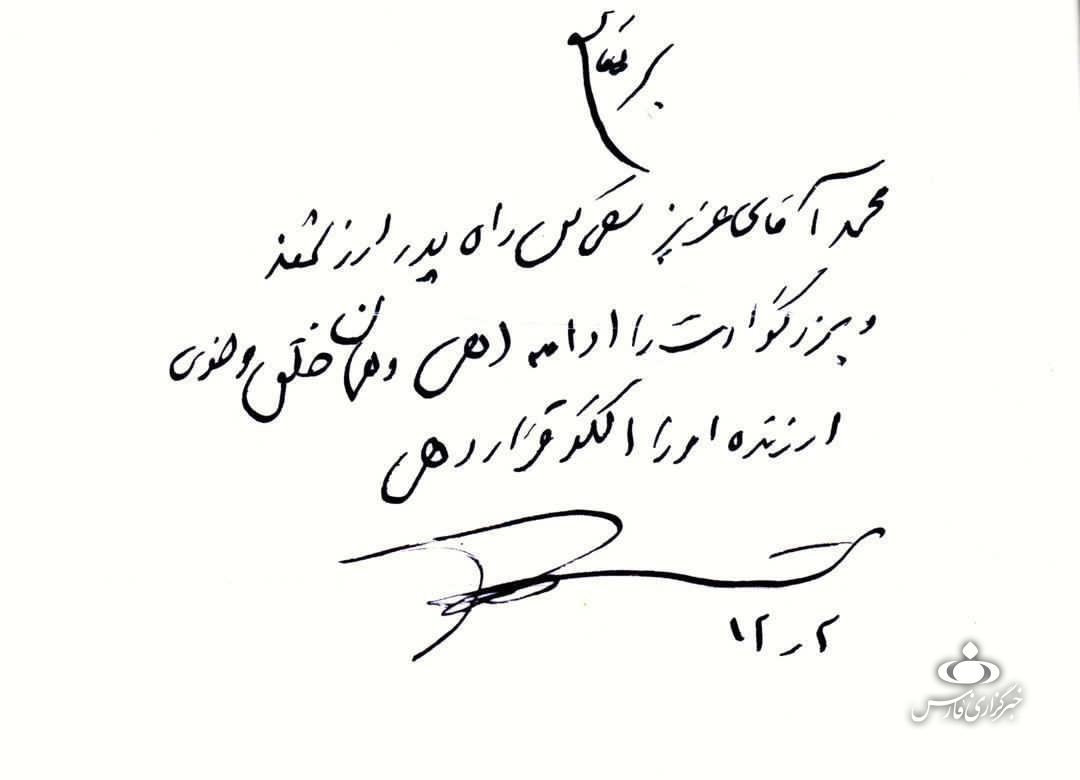 برتعالی
محمد آقای عزیز سعی کن راه پدر ارزشمند
و بزرگوارت را ادامه دهی و همان خلق و خوی
ارزنده او را الگو قرار دهی
۱۲ر۲
خبرگزاری فارس